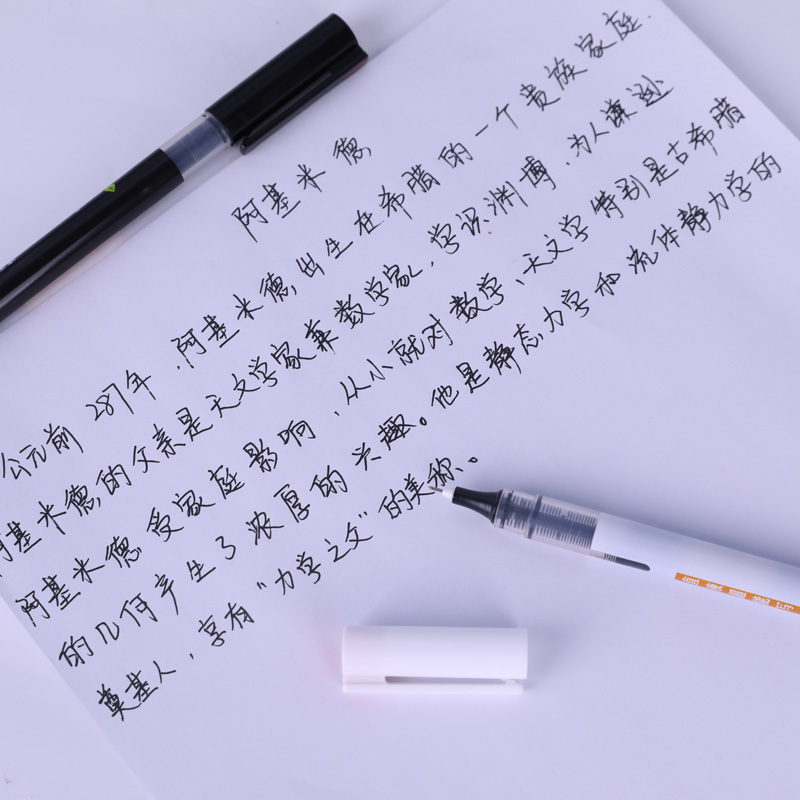 阿基米德
公元前287年,阿基米德出生在希腊的一个贵族家庭.
阿基米德的父亲是天文学家兼数学家,学识渊博,为人谦逊
阿基米德受家庭影响,从小就对数学、天文学特别是古希腊
的几何产生了浓厚的兴趣。他是静态力学和流体静力学的
奠基人,享有“力学之父”的美称。